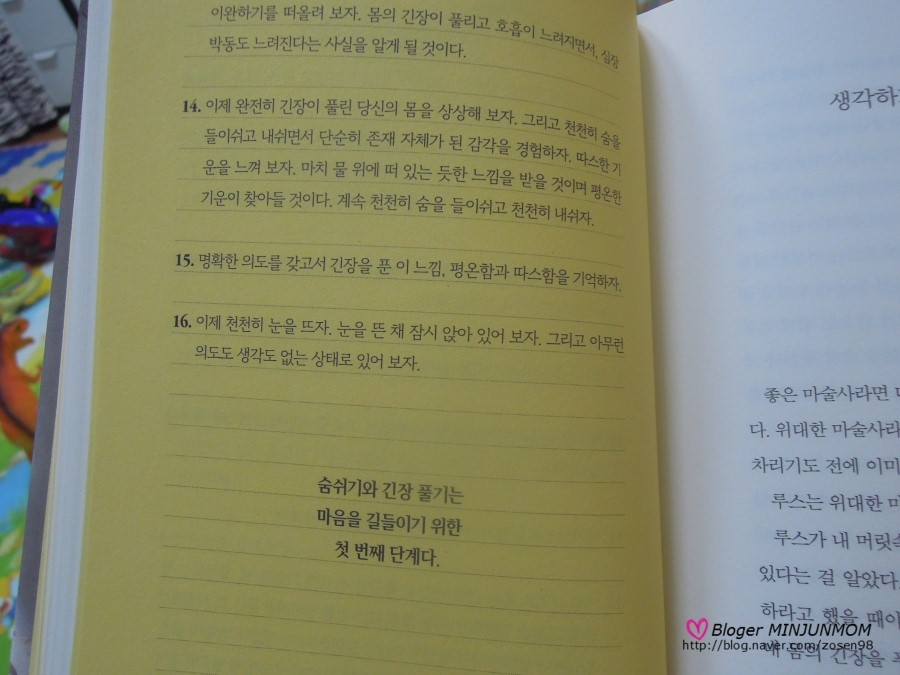 이완하기를 떠올려 보자. 몸의 긴장이 풀리고 호흡이 느려지면서, 심장
박동도 느려진다는 사실을 알게 될 것이다.
14. 이제 완전히 긴장이 풀린 당신의 몸을 상상해 보자. 그리고 천천히 숨을
들이쉬고 내쉬면서 단순히 존재 자체가 된 감각을 경험하자. 따스한 기
운을 느껴 보자. 마치 물 위에 떠 있는 듯한 느낌을 받을 것이며 평온한
기운이 찾아들 것이다. 계속 천천히 숨을 들이쉬고 천천히 내쉬자.
15. 명확한 의도를 갖고서 긴장을 푼 이 느낌, 평온함과 따스함을 기억하자.
16. 이제 천천히 눈을 뜨자. 눈을 뜬 채 잠시 앉아 있어 보자. 그리고 아무런
의도도 생각도 없는 상태로 있어 보자.
숨쉬기와 긴장 풀기는
마음을 길들이기 위한
첫 번째 단계다.
생각하
좋은 마술사라면
다. 위대한 마술사라
차리기도 전에 이미
루스는 위대한
루스가 내 머릿속
있다는 걸 알았다.
하라고 했을 때
내 몸의 긴장을
Bloger MINJUNMOM
http://blog.naver.com/zosen98